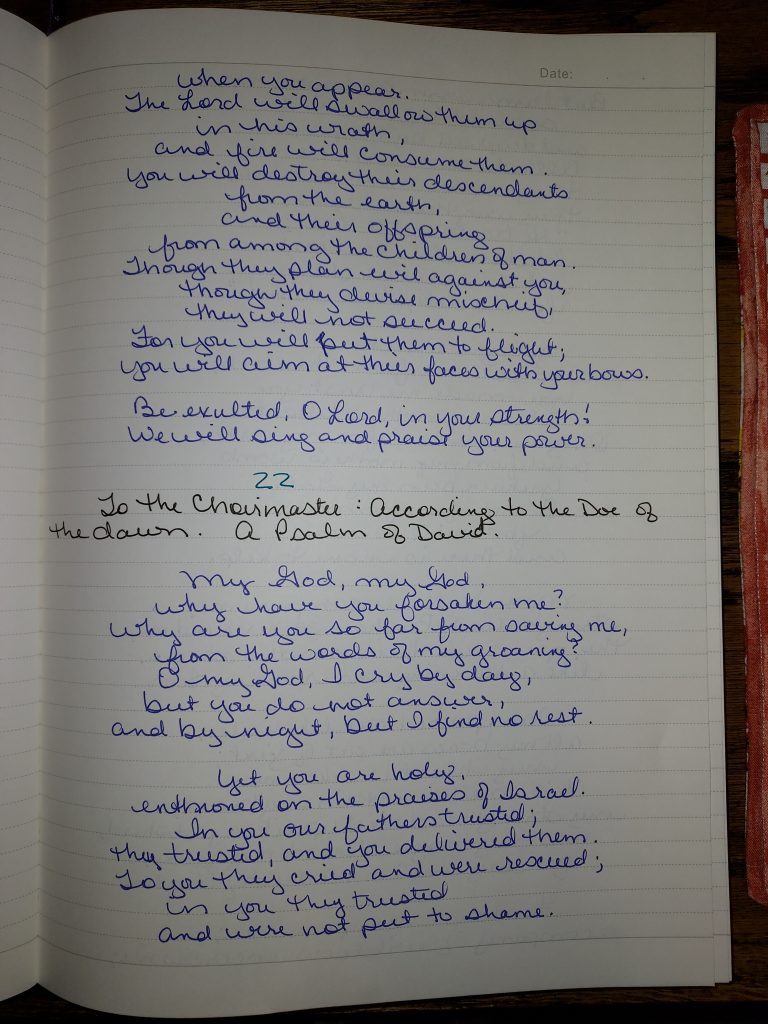 Date:
when you appear.
The Lord will swallow them up
in his wrath,
and fire will consume them.
You will destroy their descendants
from the earth,
and their offspring
from among the children of man.
Though they plan evil against you,
though they devise mischief,
they will not succeed.
For you will put them to flight;
you will aim at their faces with your bows.
Be exulted, O Lord, in your strength!
We will sing and praise your power.
22
To the Choirmaster : According to the Doe of
the dawn. A Psalm of David.
My God, my God,
why have you forsaken me?
Why are you so far from saving me,
from the words of my groaning?
O my God, I cry by day,
but you do not answer,
and by night, but I find no rest.
Yet you are holy,
enthroned on the praises of Israel.
In you our fathers trusted;
they trusted, and you delivered them.
To you they cried and were rescued;
in you they trusted
and were not put to shame.